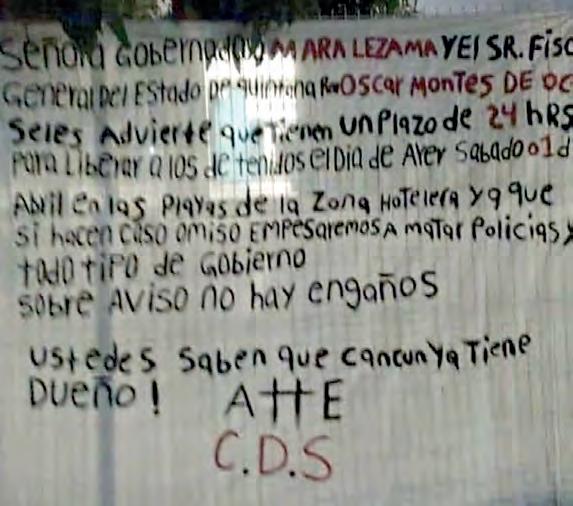 Señora Gobernadora MARA LEZAMA Y El SR. Fisc
General Del Estado De Quintana Roo OSCAR MONTES DE OC
Seles Advierte que Tienen un Plazo de 24 hRS
Para Liberar a los detenidos el Dia de Ayer Sabado 01 d
Abril en las Playas de la Zona Hotelera ya que
Si hacen caso omiso EMPESaremos A mataR Policias y
todo tipo de Gobierno
Sobre AViso no hay engaños
ustedes Saben que cancun Ya Tiene
DUEÑO!
ATTE
C.D.S